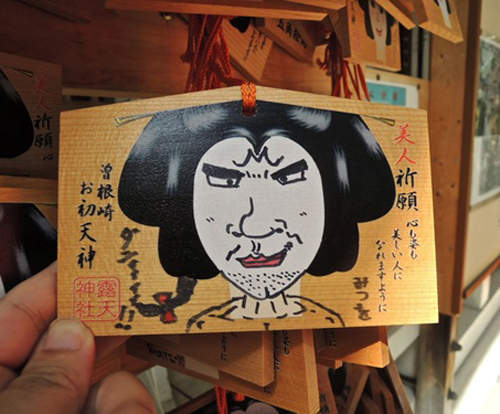 美人祈願
心も姿も
美しい人に
なれますように
みつを
曽根崎
お初天神
露天
神社
美人祈願